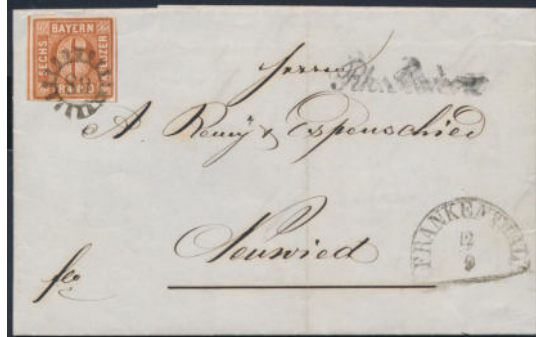 BAYERN
SECHS
KREUZER
Herren
A Remy & Espenschied
Neuwied
fco
FRANKENTHAL
12
9